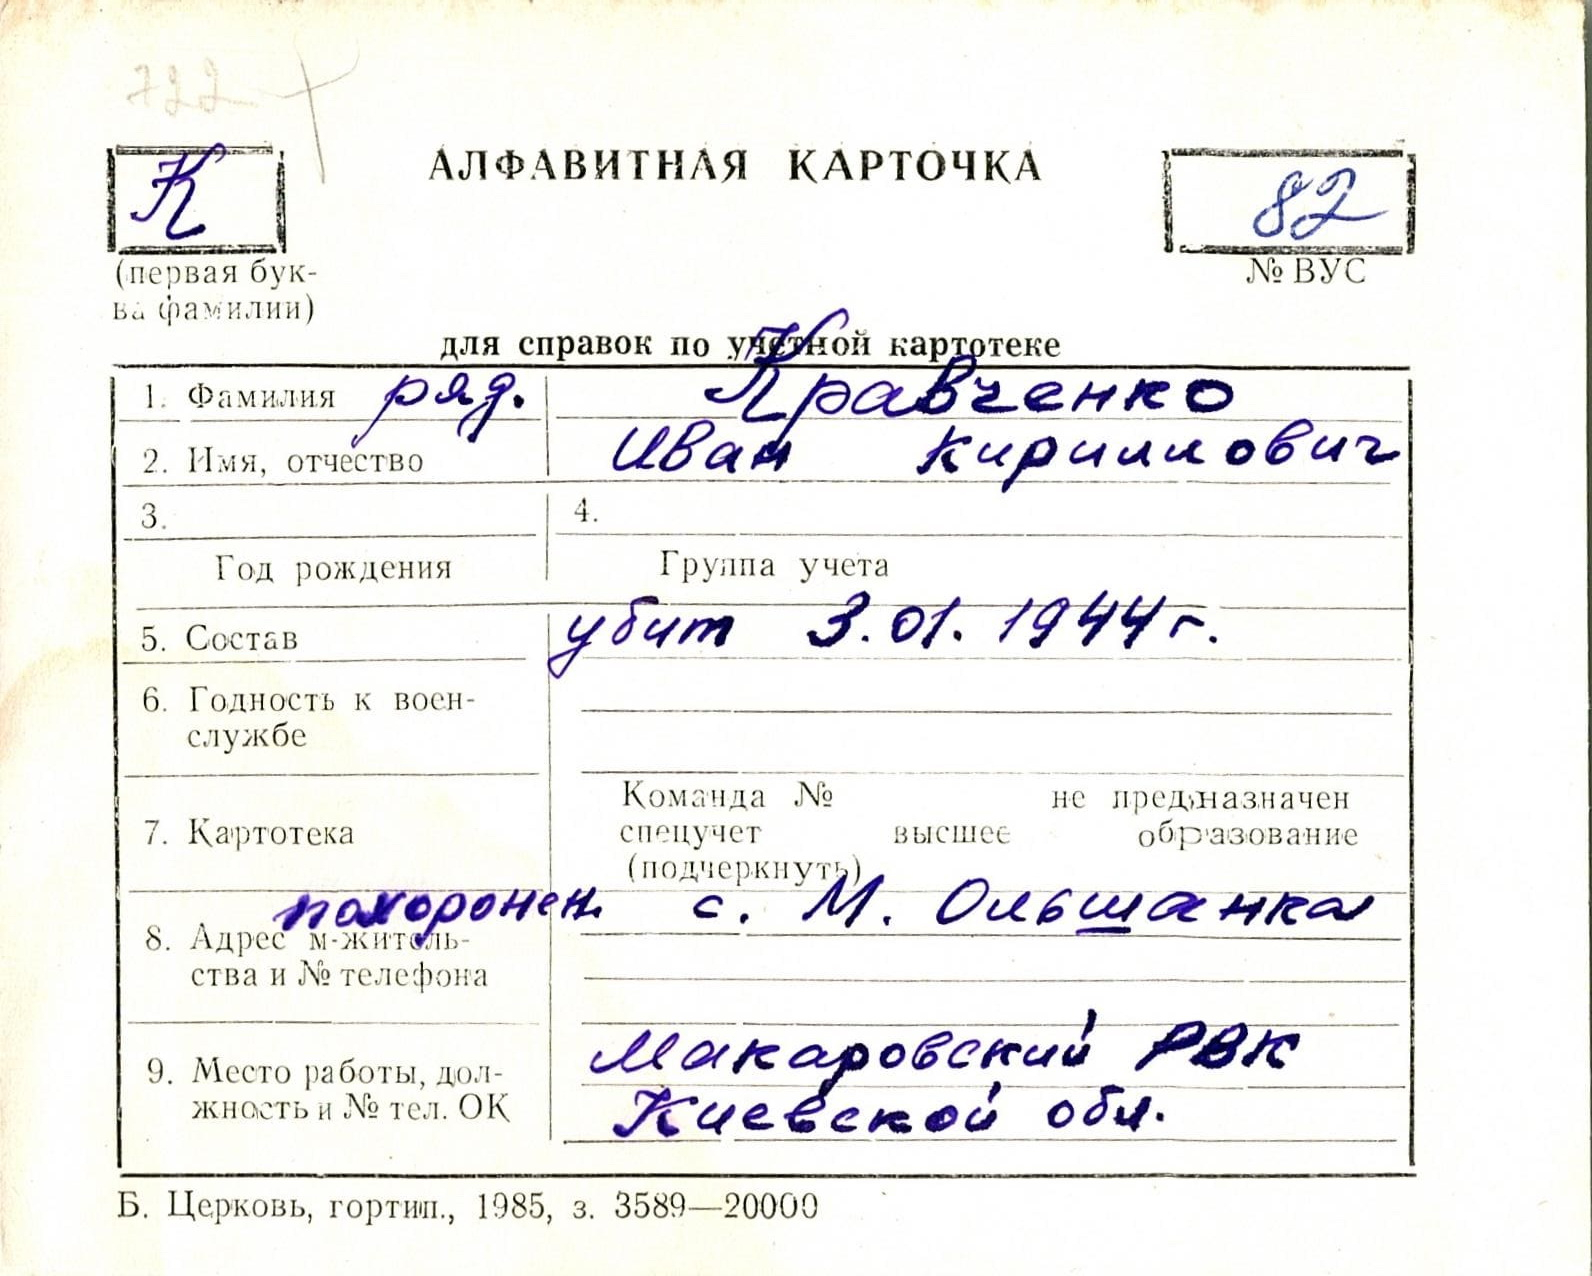 722
К
АЛФАВИТНАЯ КАРТОЧКА
82
(первая бук-
ва фамилии)
№ ВУС
для справок по учетной картотеке
1. Фамилия ряд. Кравченко
2. Имя, отчество Иван Кириллович
3. 4.
Год рождения Группа учета
5. Состав убит 3.01.1944 г.
6. Годность к воен-
службе
Команда № не предназначен
7. Картотека спецучет высшее образование
(подчеркнуть)
похоронен. с. М. Ольшанка
8. Адрес м-житель-
ства и № телефона
Макаровский РВК
9. Место работы, дол-
жность и № тел. ОК Киевской обл.
Б. Церковь, гортип., 1985, з. 3589—20000